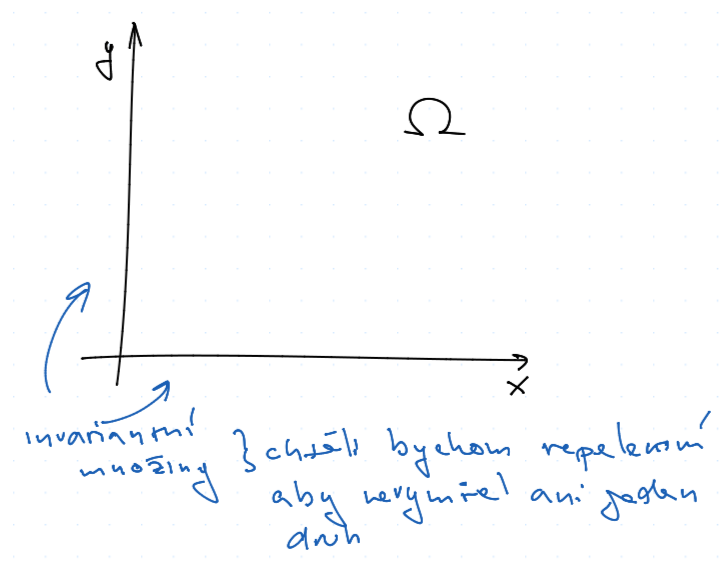 y
Ω
x
invariantní
množiny } chtěli bychom repelentní
aby nevymřel ani jeden
druh